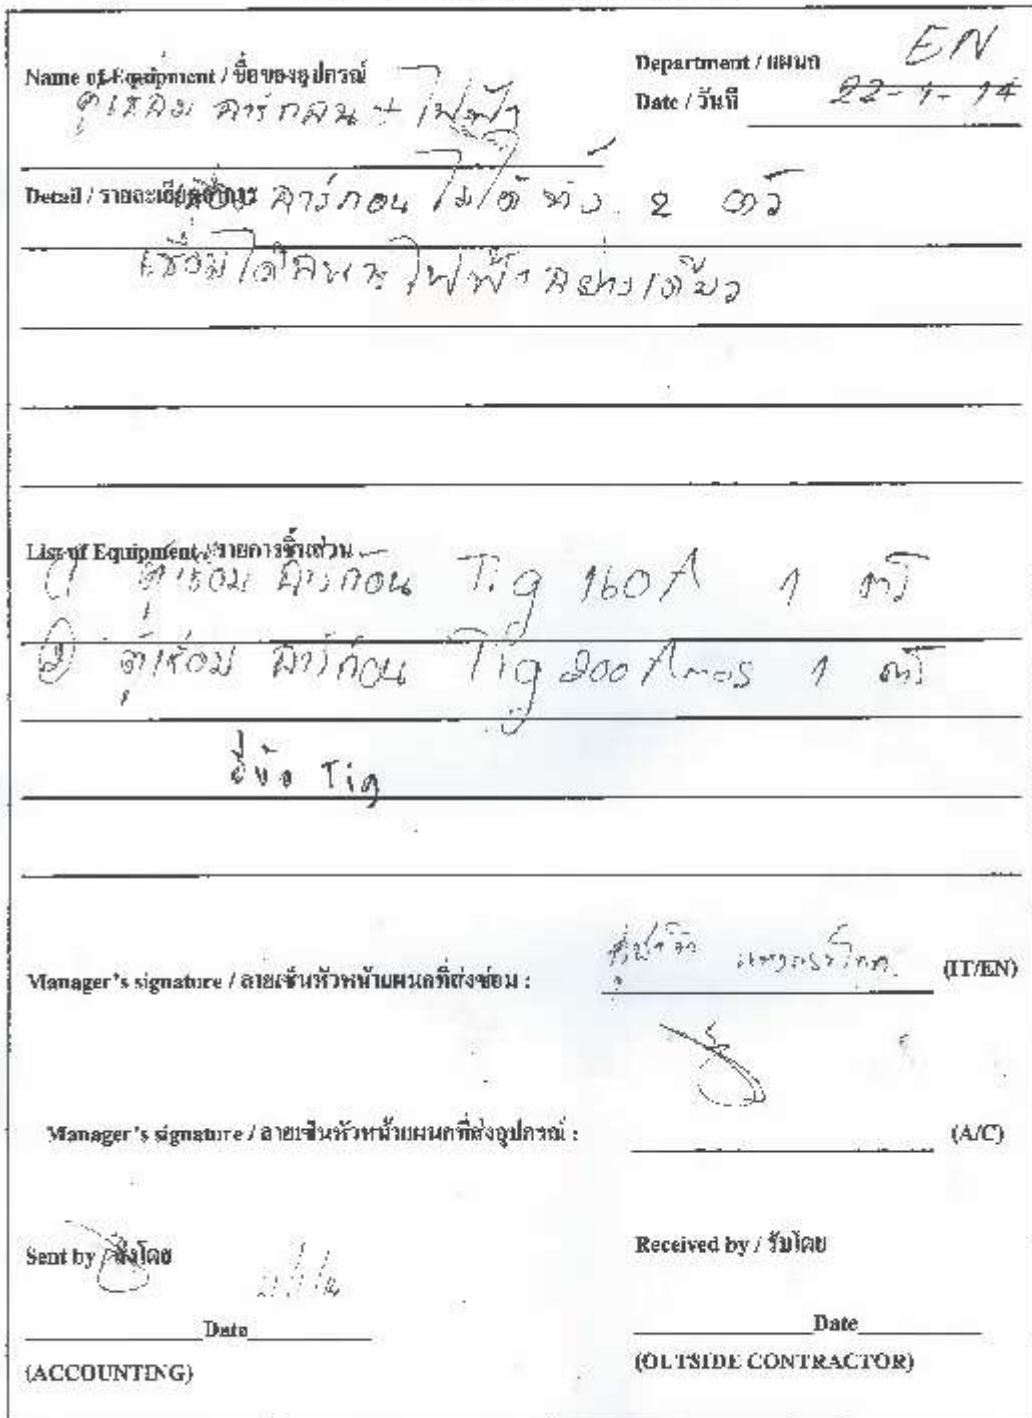 Name of Equipment / ชื่อของอุปกรณ์
ตู้เชื่อม อาร์กอน + ไฟฟ้า
Department / แผนก EN
Date / วันที่ 22-1-14
Detail / รายละเอียดอาการ เชื่อม อาร์กอน ไม่ได้ ทั้ง 2 ตัว
เชื่อมได้ ไฟฟ้า อย่างเดียว
List of Equipment / รายการชิ้นส่วน
① ตู้เชื่อม อาร์ก้อน Tig 160A 1 ตัว
② ตู้เชื่อม อาร์ก้อน Tig 200 Amps 1 ตัว
Tig
Manager's signature / ลายเซ็นหัวหน้าแผนกที่ส่งซ่อม : (IT/EN)
Manager's signature / ลายเซ็นหัวหน้าแผนกที่ส่งอุปกรณ์ : (A/C)
Sent by / ส่งโดย
Date
(ACCOUNTING)
Received by / รับโดย
Date
(OUTSIDE CONTRACTOR)